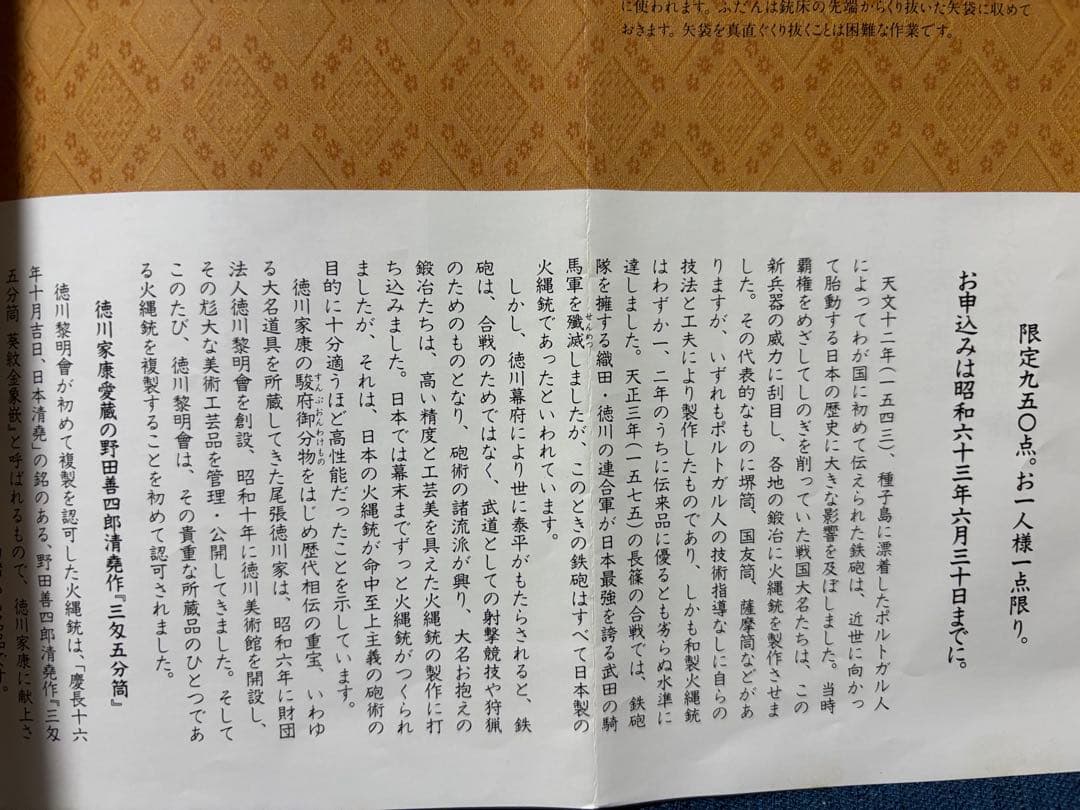 に使われます。ふだんは銃床の先端からくり抜いた矢袋に収めて
おきます。矢袋を真直ぐくり抜くことは困難な作業です。
限定九五〇点。お一人様一点限り。
お申込みは昭和六十三年六月三十日までに。
天文十二年(一五四三)、種子島に漂着したポルトガル人
によってわが国に初めて伝えられた鉄砲は、近世に向かっ
て胎動する日本の歴史に大きな影響を及ぼしました。当時
覇権をめざしてしのぎを削っていた戦国大名たちは、この
新兵器の威力に刮目し、各地の鍛冶に火縄銃を製作させま
した。その代表的なものに堺筒、国友筒、薩摩筒などがあ
りますが、いずれもポルトガル人の技術指導なしに自らの
技法と工夫により製作したものであり、しかも和製火縄銃
はわずか一、二年のうちに伝来品に優るとも劣らぬ水準に
達しました。天正三年(一五七五)の長篠の合戦では、鉄砲
隊を擁する織田・徳川の連合軍が日本最強を誇る武田の騎
馬軍を殲滅しましたが、このときの鉄砲はすべて日本製の
せんめつ
火縄銃であったといわれています。
しかし、徳川幕府により世に泰平がもたらされると、鉄
砲は、合戦のためではなく、武道としての射撃競技や狩猟
のためのものとなり、砲術の諸流派が興り、大名お抱えの
鍛冶たちは、高い精度と工芸美を具えた火縄銃の製作に打
ち込みました。日本では幕末までずっと火縄銃がつくられ
ましたが、それは、日本の火縄銃が命中至上主義の砲術の
目的に十分適うほど高性能だったことを示しています。
徳川家康の駿府御分物をはじめ歴代相伝の重宝、いわゆ
すんぷおんわけもの
る大名道具を所蔵してきた尾張徳川家は、昭和六年に財団
法人徳川黎明會を創設、昭和十年に徳川美術館を開設し、
その尨大な美術工芸品を管理・公開してきました。そして
このたび、徳川黎明會は、その貴重な所蔵品のひとつであ
る火縄銃を複製することを初めて認可されました。
徳川家康愛蔵の野田善四郎清堯作『三匁五分筒』
徳川黎明會が初めて複製を認可した火縄銃は、「慶長十六
年十月吉日、日本清堯」の銘のある、野田善四郎清堯作『三匁
五分筒 葵紋金象嵌』と呼ばれるもので、徳川家康に献上さ
品です。